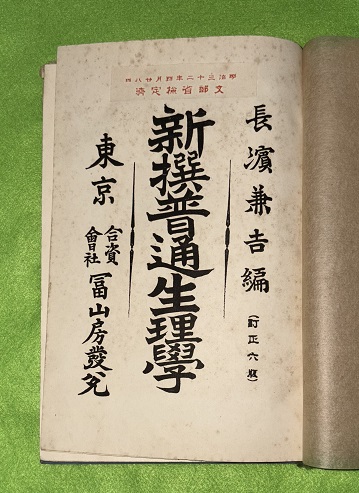 明治三十二年月廿八日
文部省檢定濟
長濱兼吉編
(訂正六版)
新撰普通生理學
東京
合資
會社
冨山房發兌